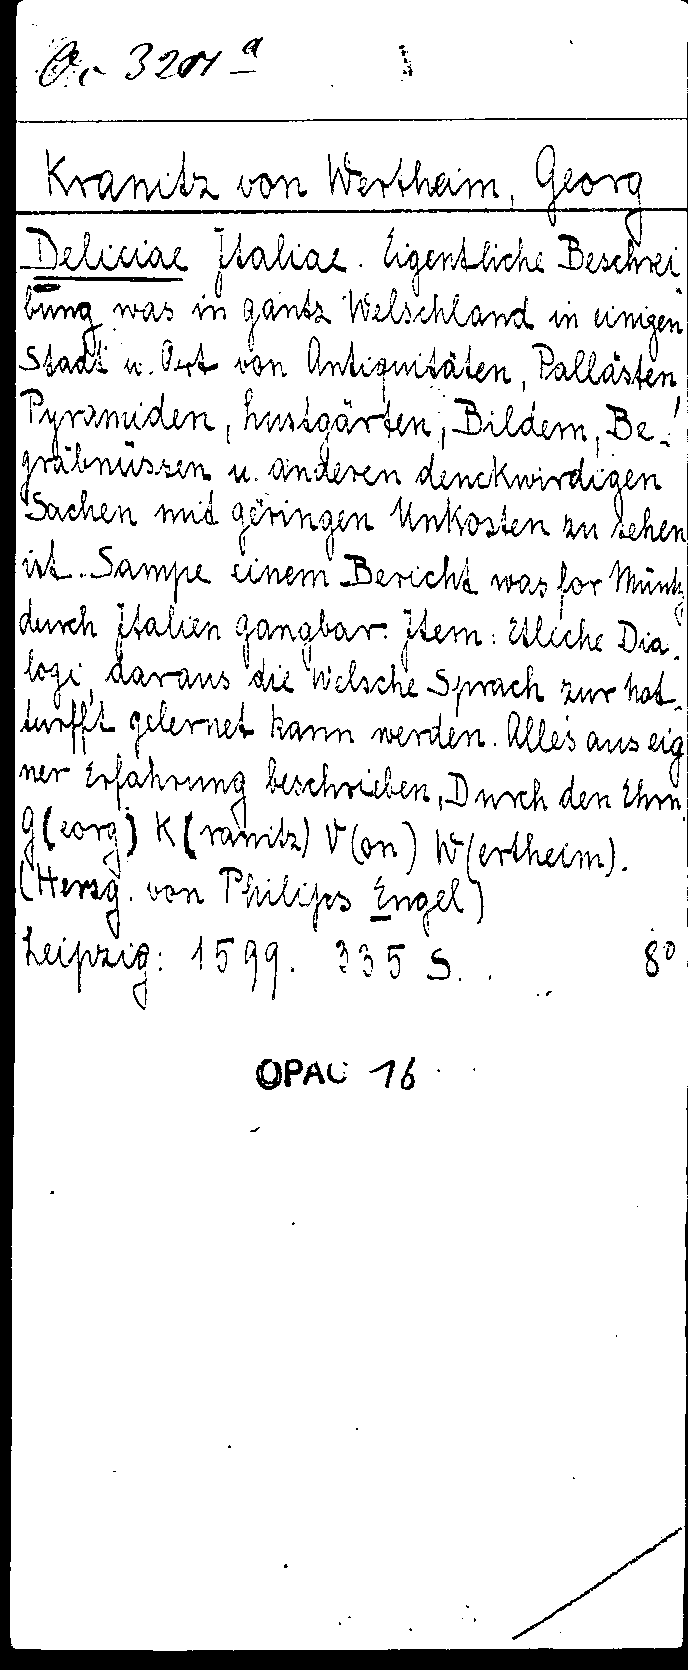 3201 a
Kranitz von Wertheim, Georg
Deliciae Italiae. Eigentliche Beschrei
bung was in gantz Welschland in einigen
Stadt u. Ort von Antiquitäten, Pallästen,
Pyramiden, Lustgärten, Bildern, Be-
gräbnüssen u. anderen denckwirdigen
Sachen mit geringen Unkosten zu sehen
ist. Sampe einem Bericht was for Müntz
durch Italien gangbar. Item: Etliche Dia-
logi, daraus die Welsche Sprach zur not-
turfft gelernet kann werden. Alles aus eig
ner Erfahrung beschrieben, Durch den Ehrn
G(eorg) K(ranitz) V(on) W(ertheim).
(Hersg. von Philips Engel)
Leipzig: 1599. 335 S. 8°
OPAC 16